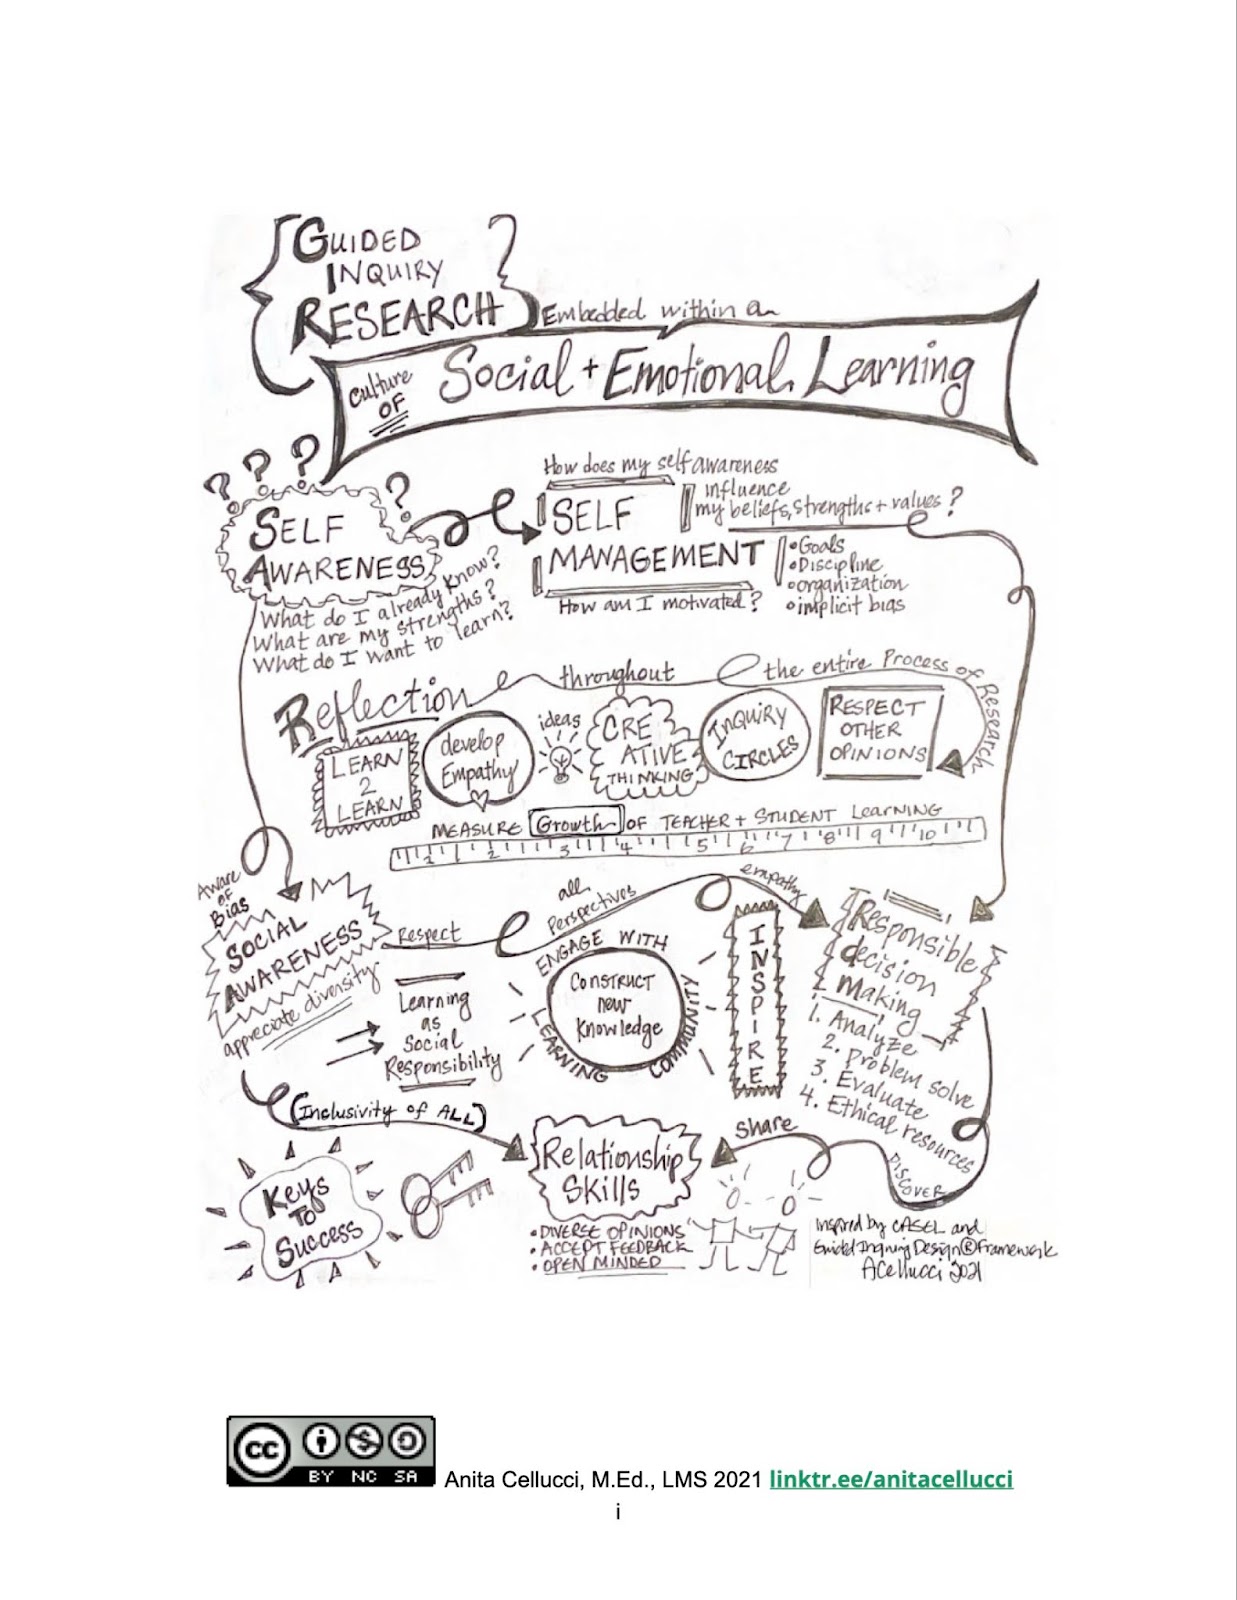 GUIDED
INQUIRY
RESEARCH
Embedded within a
Culture
OF
Social + Emotional Learning
? ? ? ?
SELF
AWARENESS
What do I already know?
What are my strengths?
What do I want to learn?
How does my self awareness
influence
my beliefs, strengths + values?
SELF
MANAGEMENT
How am I motivated?
•Goals
•Discipline
•organization
•implicit bias
Reflection
throughout
the entire Process of Research
LEARN
2
LEARN
develop
Empathy
ideas
CRE
ATIVE
THINKING
INQUIRY
CIRCLES
RESPECT
OTHER
OPINIONS
MEASURE Growth OF TEACHER + STUDENT Learning
1 2 3 4 5 6 7 8 9 10
Aware
OF
Bias
SOCIAL
AWARENESS
appreciate diversity
Respect
all
Perspectives
empathy
Learning
as
Social
Responsibility
ENGAGE WITH
LEARNING
COMMUNITY
CONSTRUCT
new
Knowledge
INSPIRE
Responsible
decision
Making
1. Analyze
2. Problem solve
3. Evaluate
4. Ethical resources
DISCOVER
Share
(Inclusivity of ALL)
Keys
TO
Success
Relationship
Skills
• DIVERSE OPINIONS
• ACCEPT FEEDBACK
• OPEN MINDED
Inspired by CASEL and
Guided Inquiry Design®Framework
ACellucci 2021
cc
BY NC SA
Anita Cellucci, M.Ed., LMS 2021 linktr.ee/anitacellucci
i